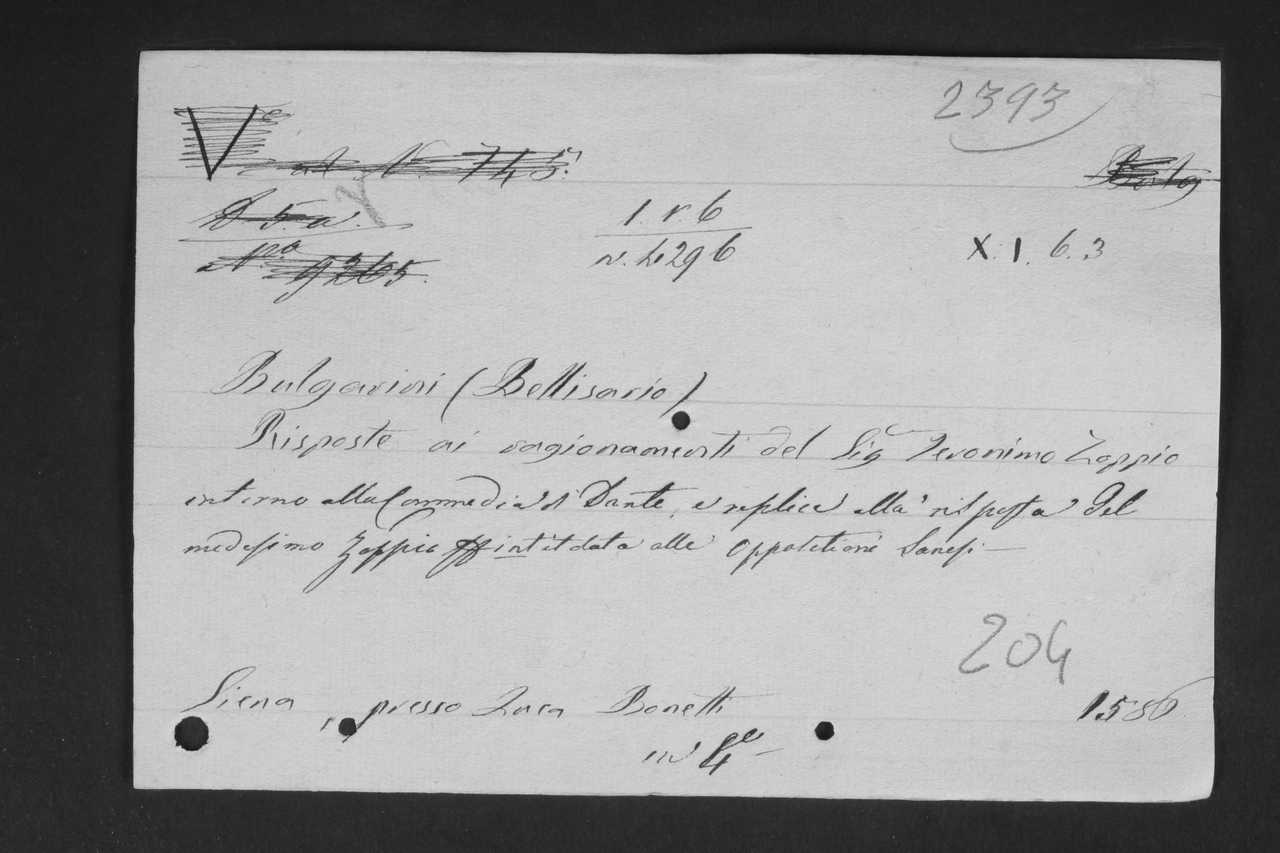 2393
V
ad N 745.
D. 5. a.
1. r. 6
n. 4296
X. 1. 6. 3
N.ro 9265.
Bulgarini (Bellisario)
Risposte ai ragionamenti del Sig.r Ieronimo Zoppio
intorno alla Commedia di Dante, e replica alla risposta del
medesimo Zoppio intitolata alle oppositioni Sanesi —
204
Siena, presso Luca Bonetti 1586
in 4.o —